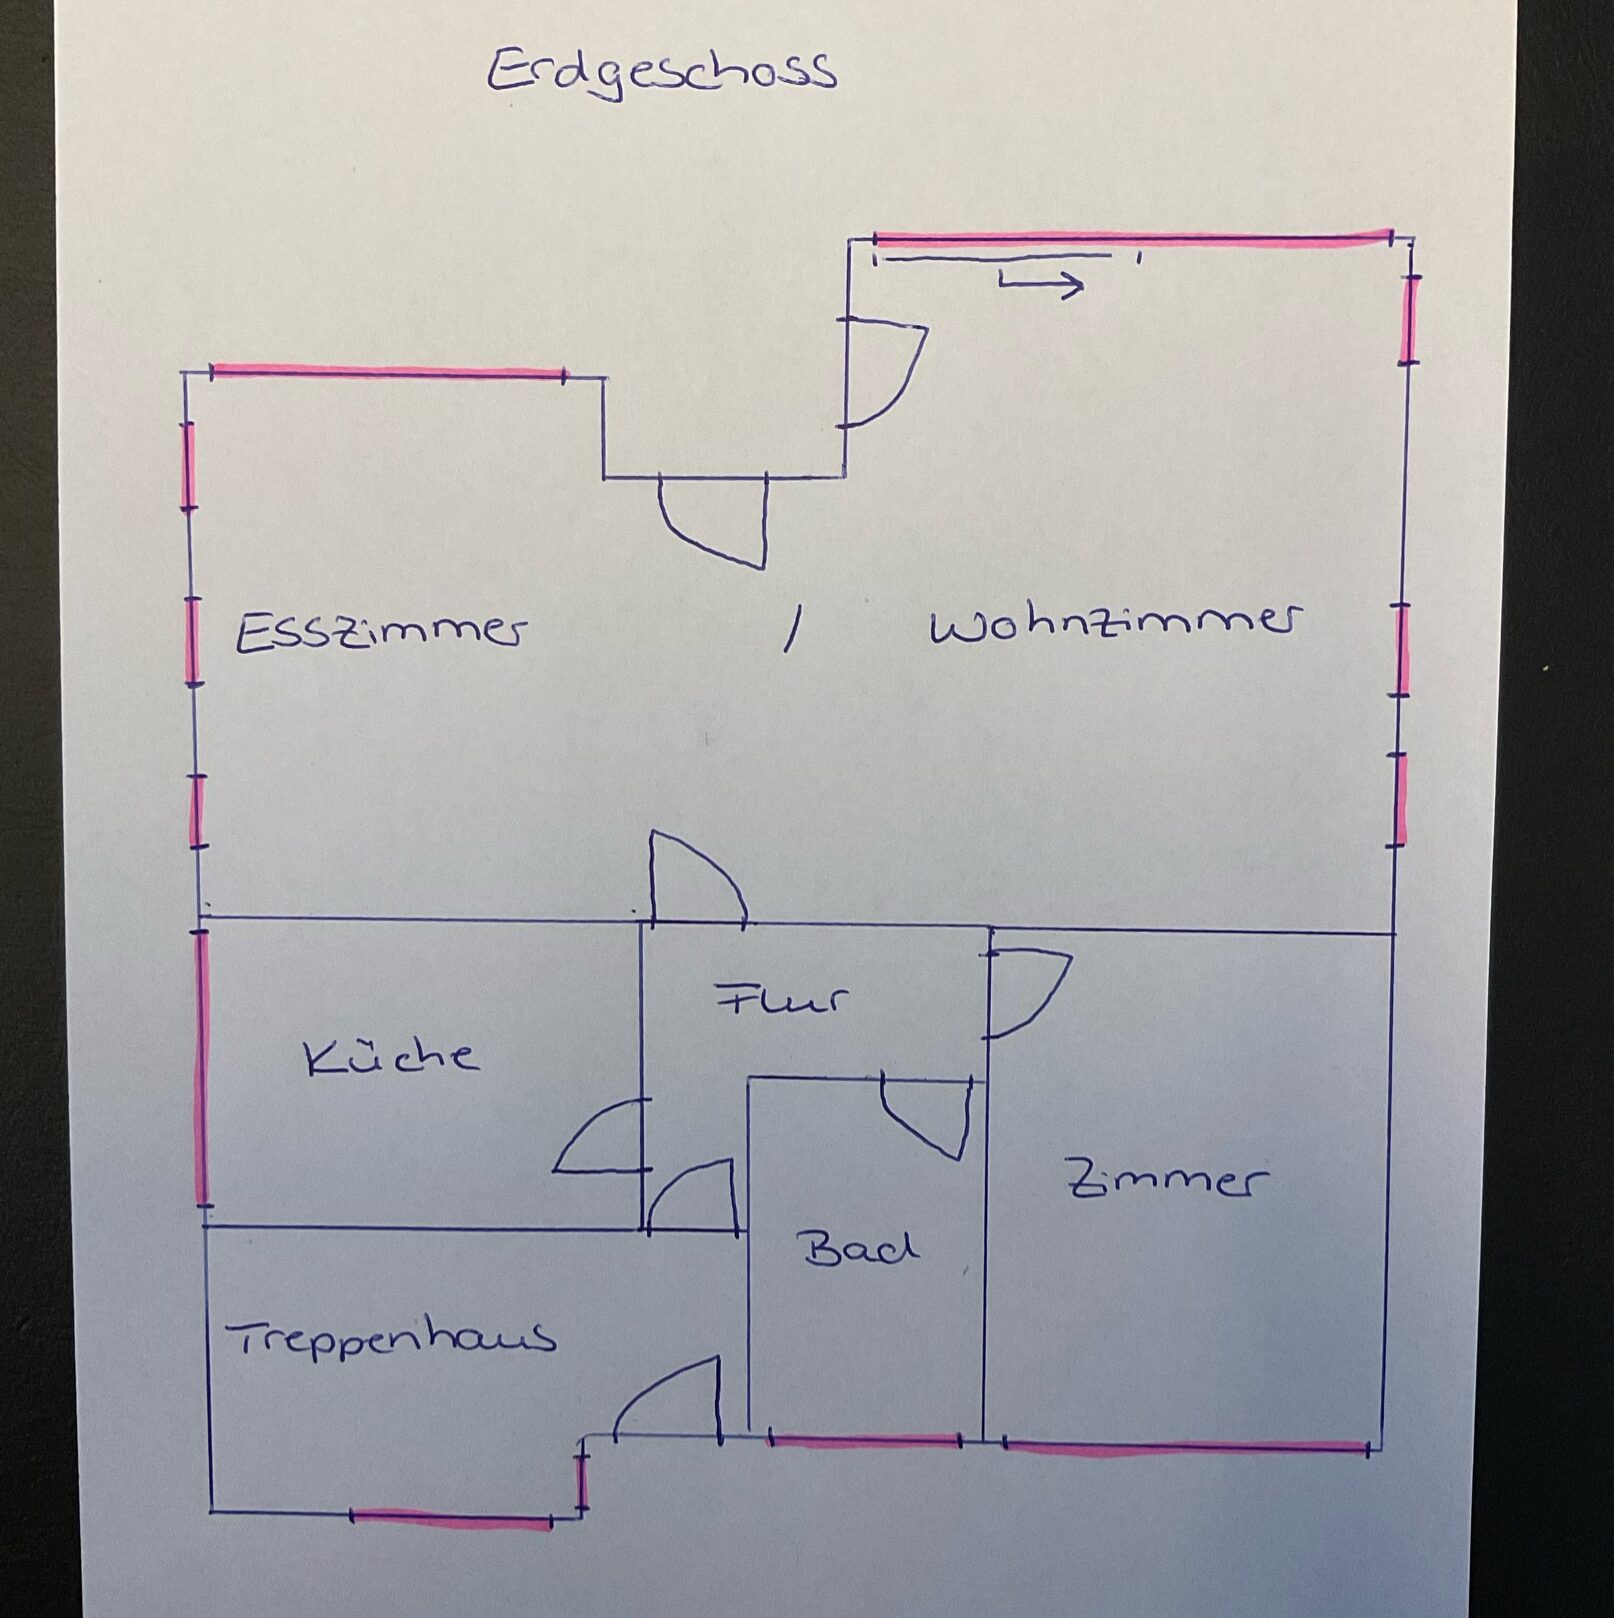 Erdgeschoss
Esszimmer / Wohnzimmer
Flur
Küche
Zimmer
Bad
Treppenhaus